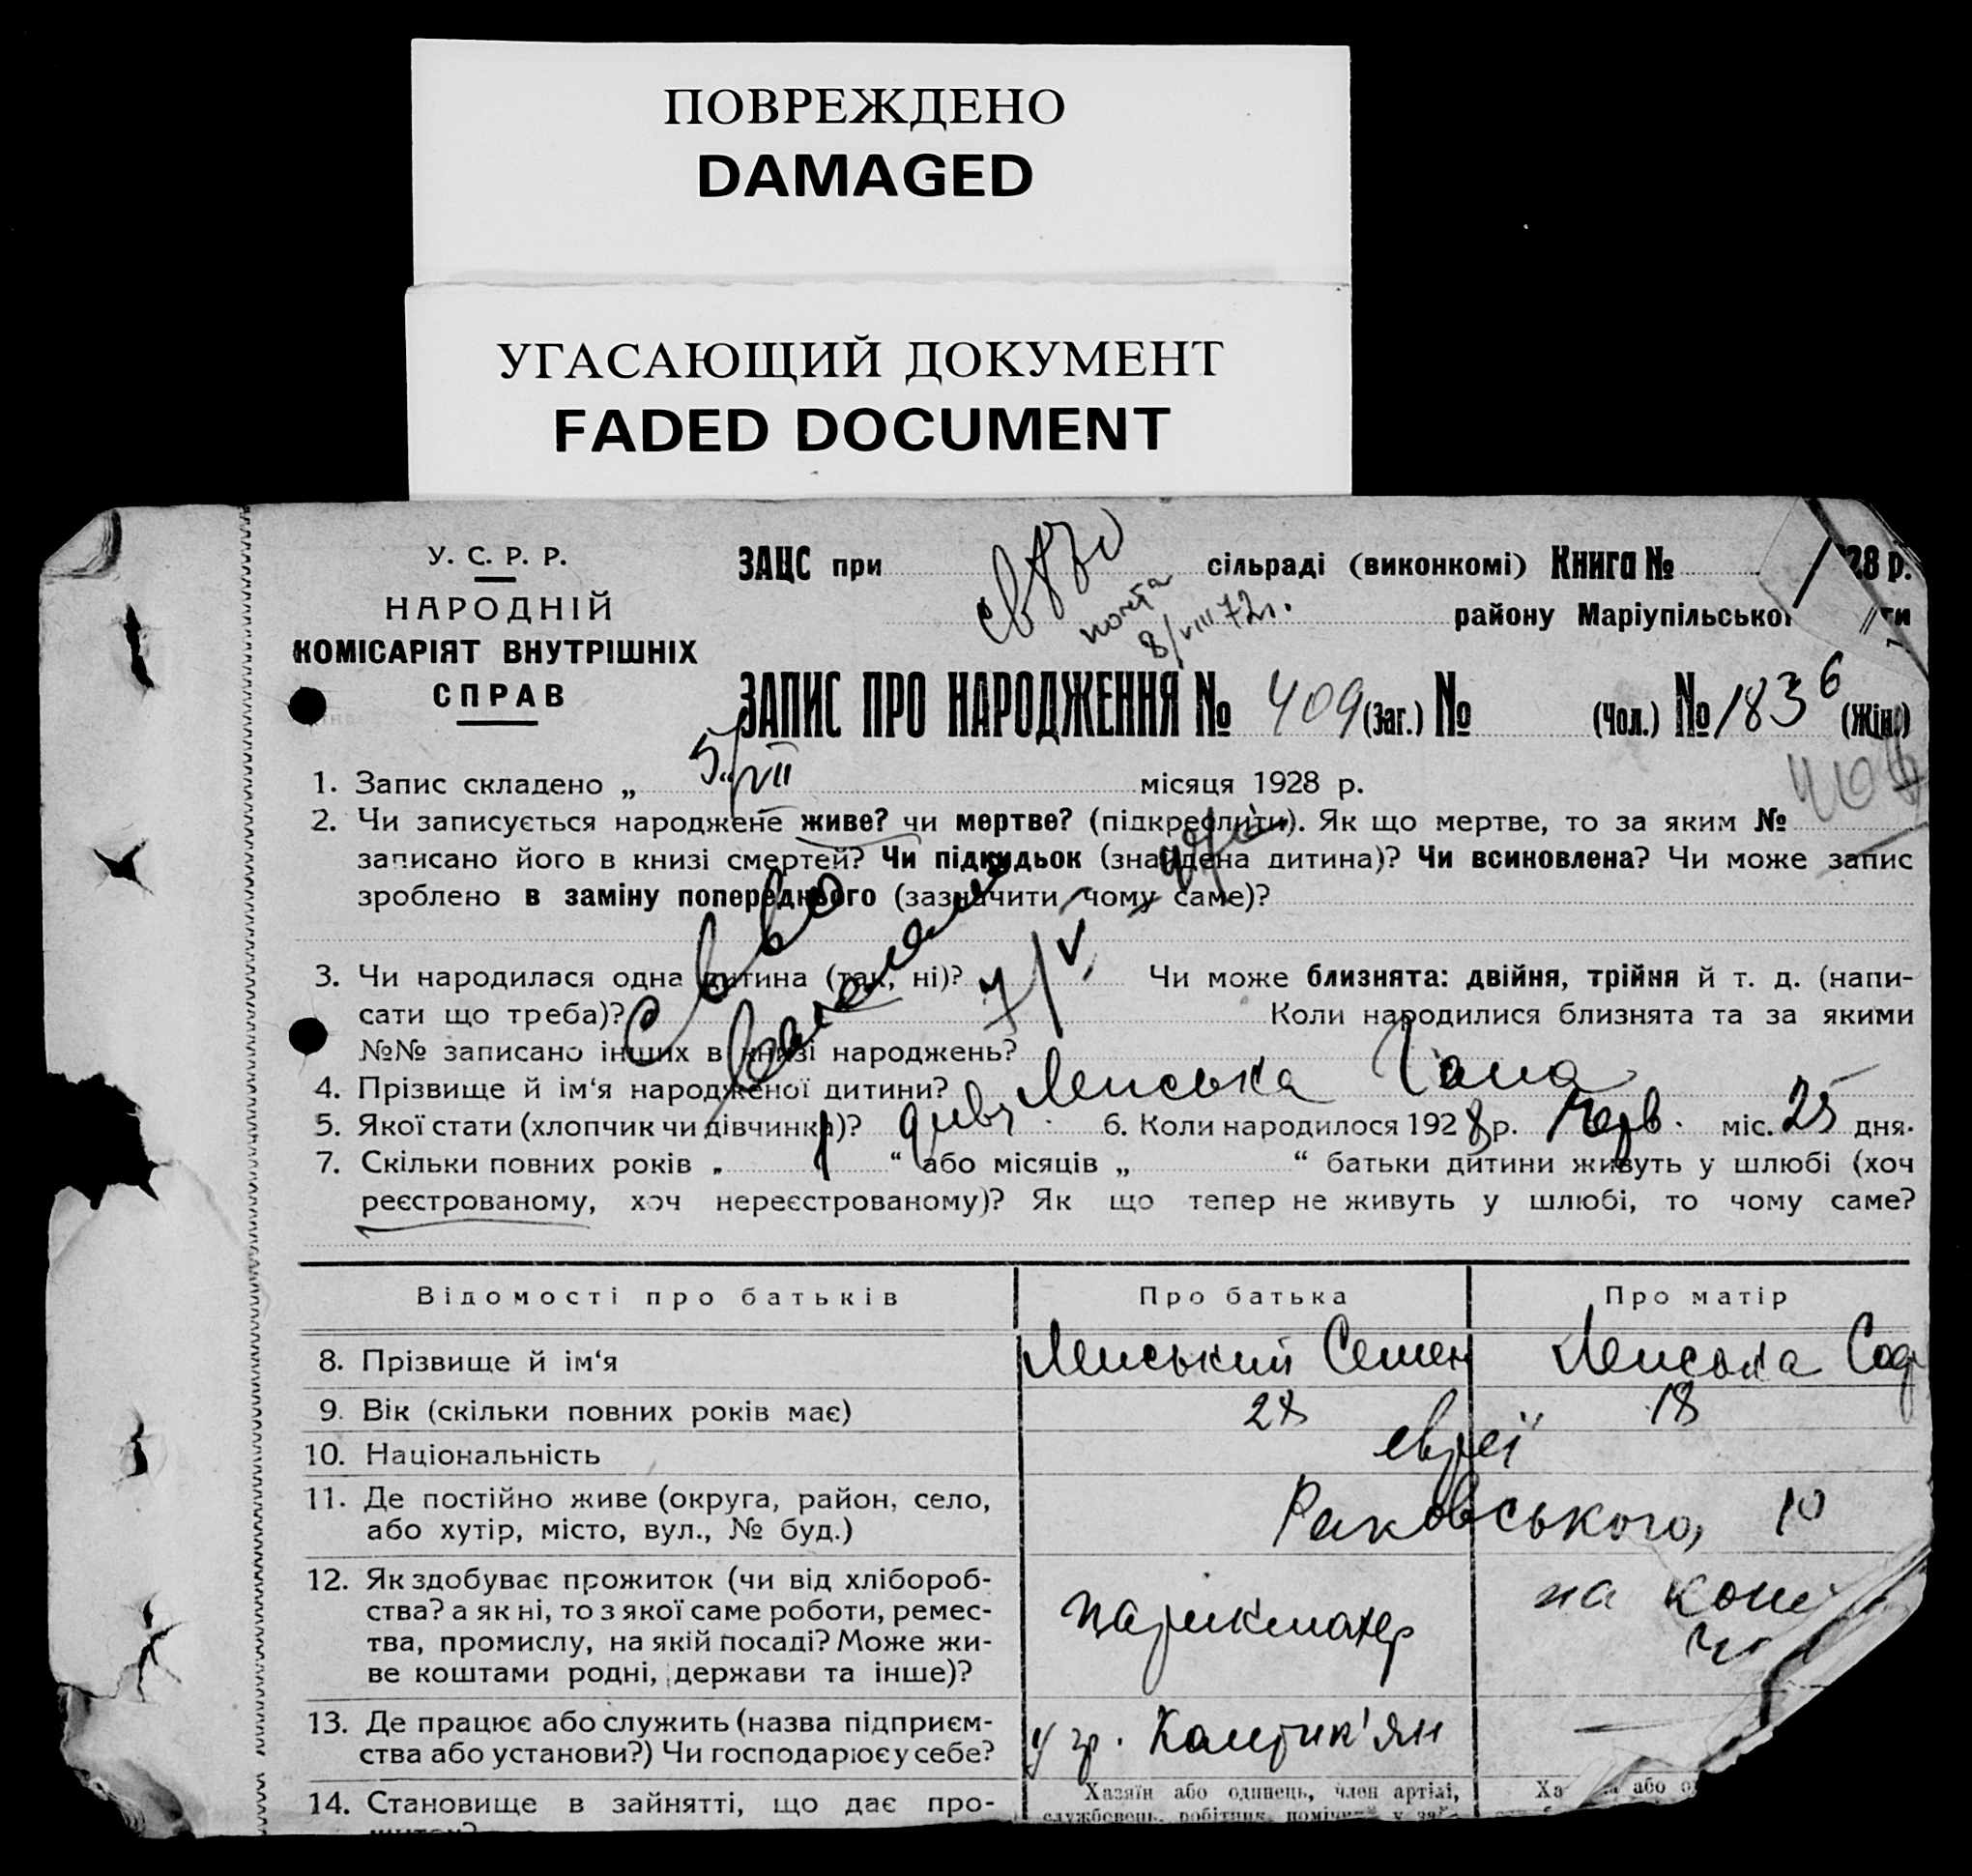 ПОВРЕЖДЕНО
DAMAGED
УГАСАЮЩИЙ ДОКУМЕНТ
FADED DOCUMENT
У. С. Р. Р.
НАРОДНІЙ
КОМІСАРІЯТ ВНУТРІШНІХ
СПРАВ
ЗАЦС при сільраді (виконкомі) Книга № 28 р.
району Маріупільської
8/VIII 72 г.
ЗАПИС ПРО НАРОДЖЕННЯ № 409 (Заг.) № (Чол.) № 183 6 (Жін.)
1. Запис складено „ 5/VII місяця 1928 р.
2. Чи записується народжене живе? чи мертве? (підкреслити). Як що мертве, то за яким №
записано його в книзі смертей? Чи підкидьок (знайдена дитина)? Чи всиновлена? Чи може запис
зроблено в заміну попереднього (зазначити чому саме)?
3. Чи народилася одна дитина (так, ні)? Чи може близнята: двійня, трійня й т. д. (напи-
сати що треба)? Коли народилися близнята та за якими
№№ записано інших в книзі народжень?
4. Прізвище й ім‘я народженої дитини?
5. Якої стати (хлопчик чи дівчинка)? дівч. 6. Коли народилося 1928 р. черв. міс. 25 дня.
7. Скільки повних років „ “ або місяців „ “ батьки дитини живуть у шлюбі (хоч
реєстрованому, хоч нереєстрованому)? Як що тепер не живуть у шлюбі, то чому саме?
Відомості про батьків Про батька Про матір
8. Прізвище й ім‘я Семен
9. Вік (скільки повних років має) 28 18
10. Національність євреї
11. Де постійно живе (округа, район, село,
або хутір, місто, вул., № буд.) Раковського, 10
12. Як здобуває прожиток (чи від хлібороб-
ства? а як ні, то з якої саме роботи, ремес-
тва, промислу, на якій посаді? Може жи-
ве коштами родні, держави та інше)?
парикмахер
на
13. Де працює або служить (назва підприєм-
ства або установи?) Чи господарює у себе?
у гр.
14. Становище в зайнятті, що дає про-
Хазяїн або одинець, член артілі,
службовець, робітник,
або